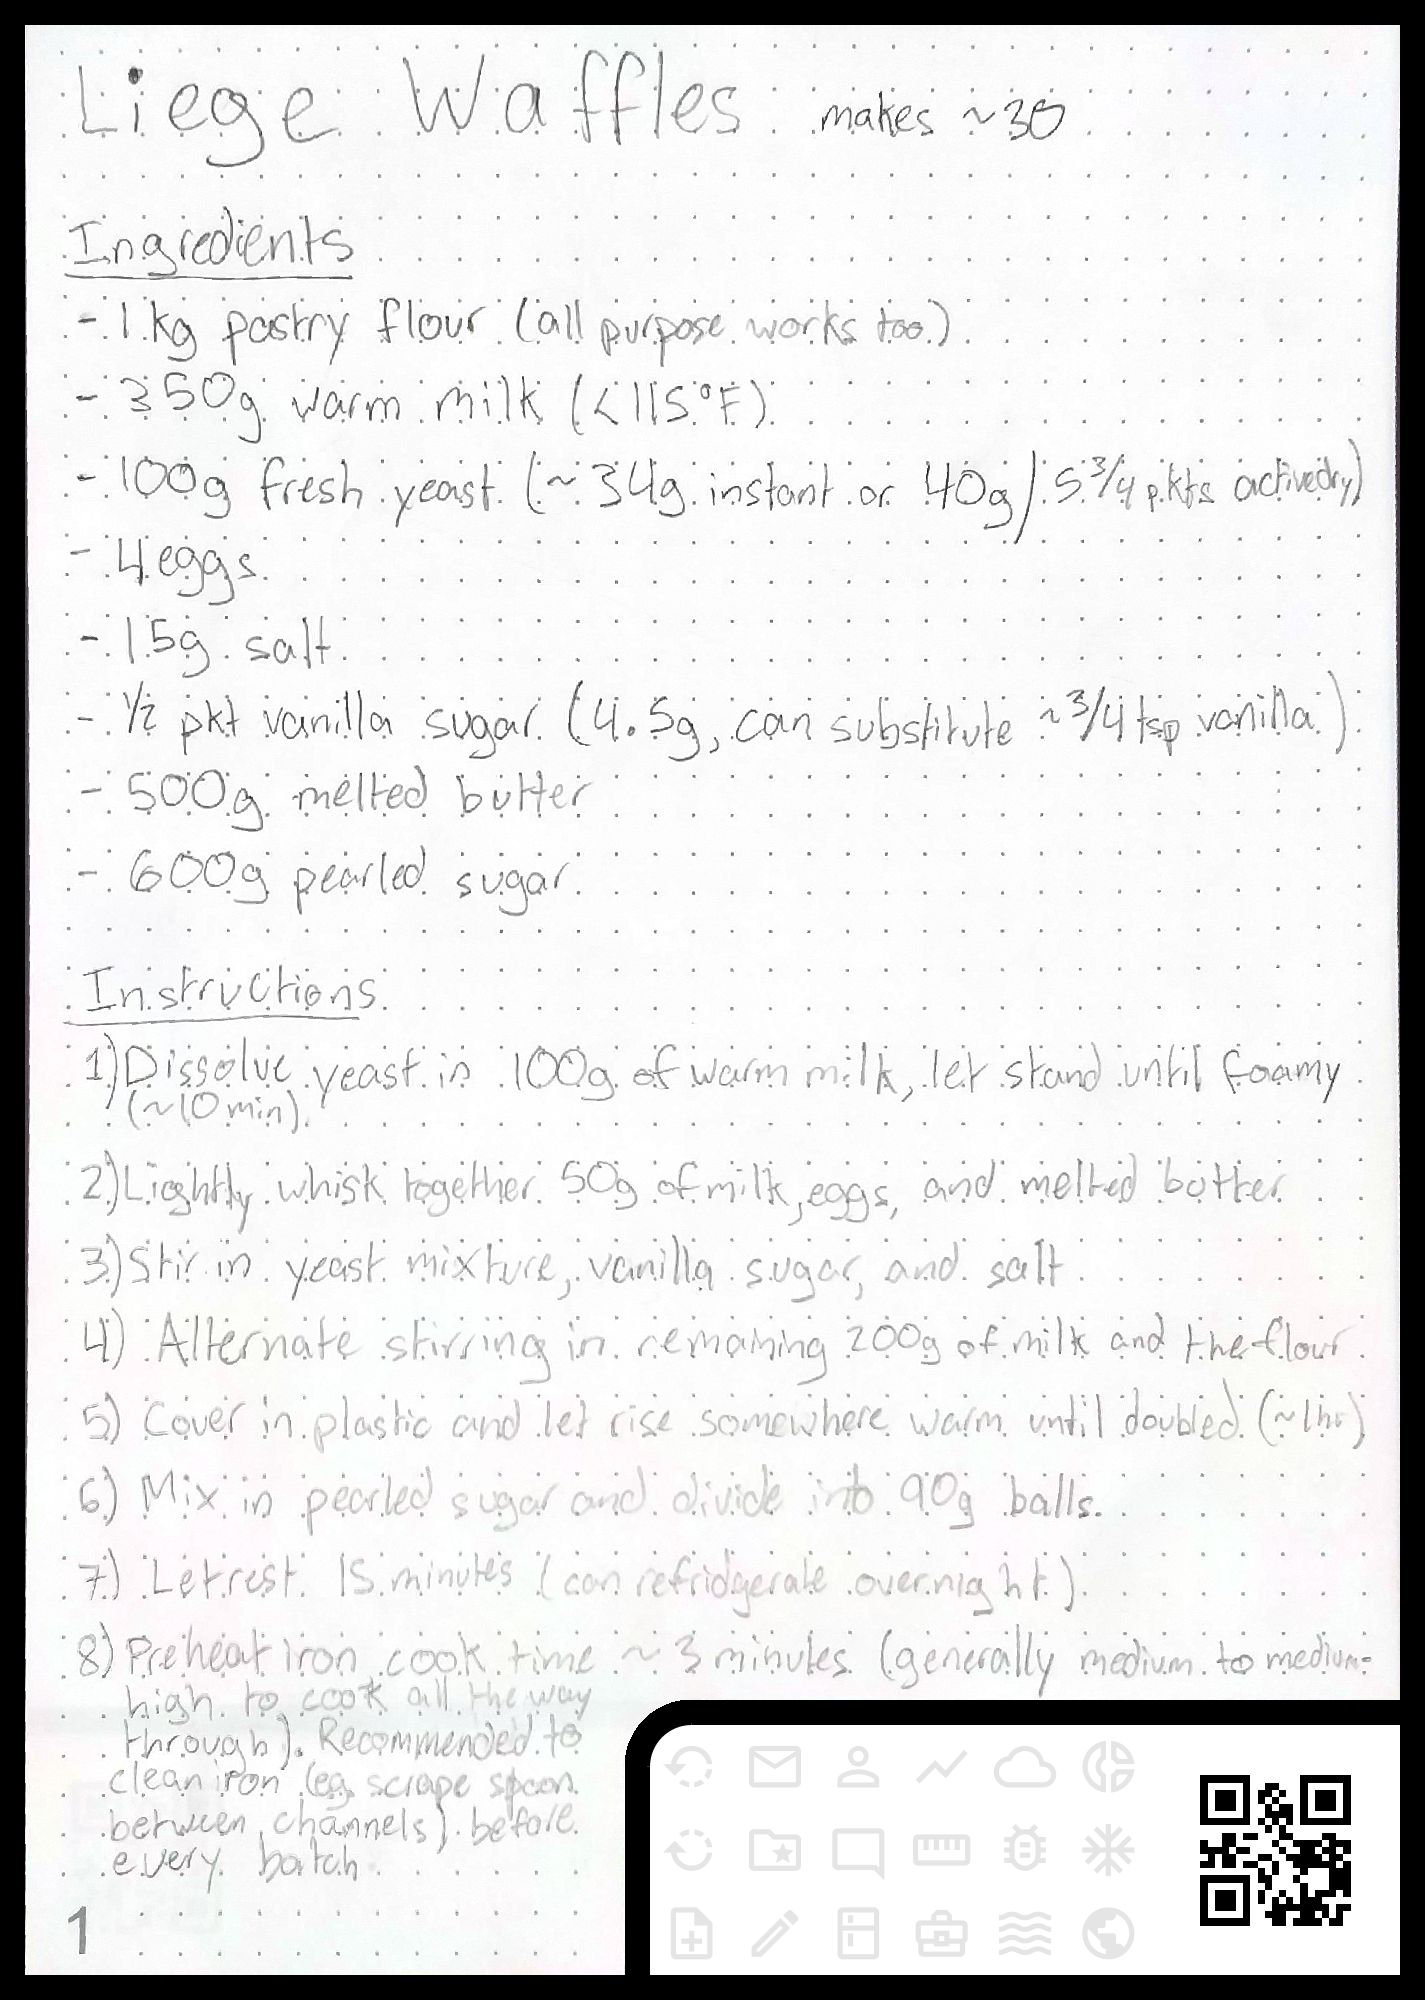 Liege Waffles makes ~30
Ingredients
- 1 kg pastry flour (all purpose works too)
- 350g warm milk (<115°F)
- 100g fresh yeast (~34g instant or 40g/5 3/4 pkts active dry)
- 4 eggs
- 15g salt
- 1/2 pkt vanilla sugar (4.5g, can substitute ~3/4 tsp vanilla)
- 500g melted butter
- 600g pearled sugar
Instructions
1) Dissolve yeast in 100g of warm milk, let stand until foamy
(~10 min)
2) Lightly whisk together 50g of milk, eggs, and melted butter
3) Stir in yeast mixture, vanilla sugar, and salt
4) Alternate stirring in remaining 200g of milk and the flour
5) Cover in plastic and let rise somewhere warm until doubled (~1hr)
6) Mix in pearled sugar and divide into 90g balls.
7) Let rest 15 minutes (can refridgerate overnight)
8) Preheat iron, cook time ~3 minutes (generally medium to medium-
high to cook all the way
through). Recommended to
clean iron (eg scrape spoon
between channels) before
every batch
1